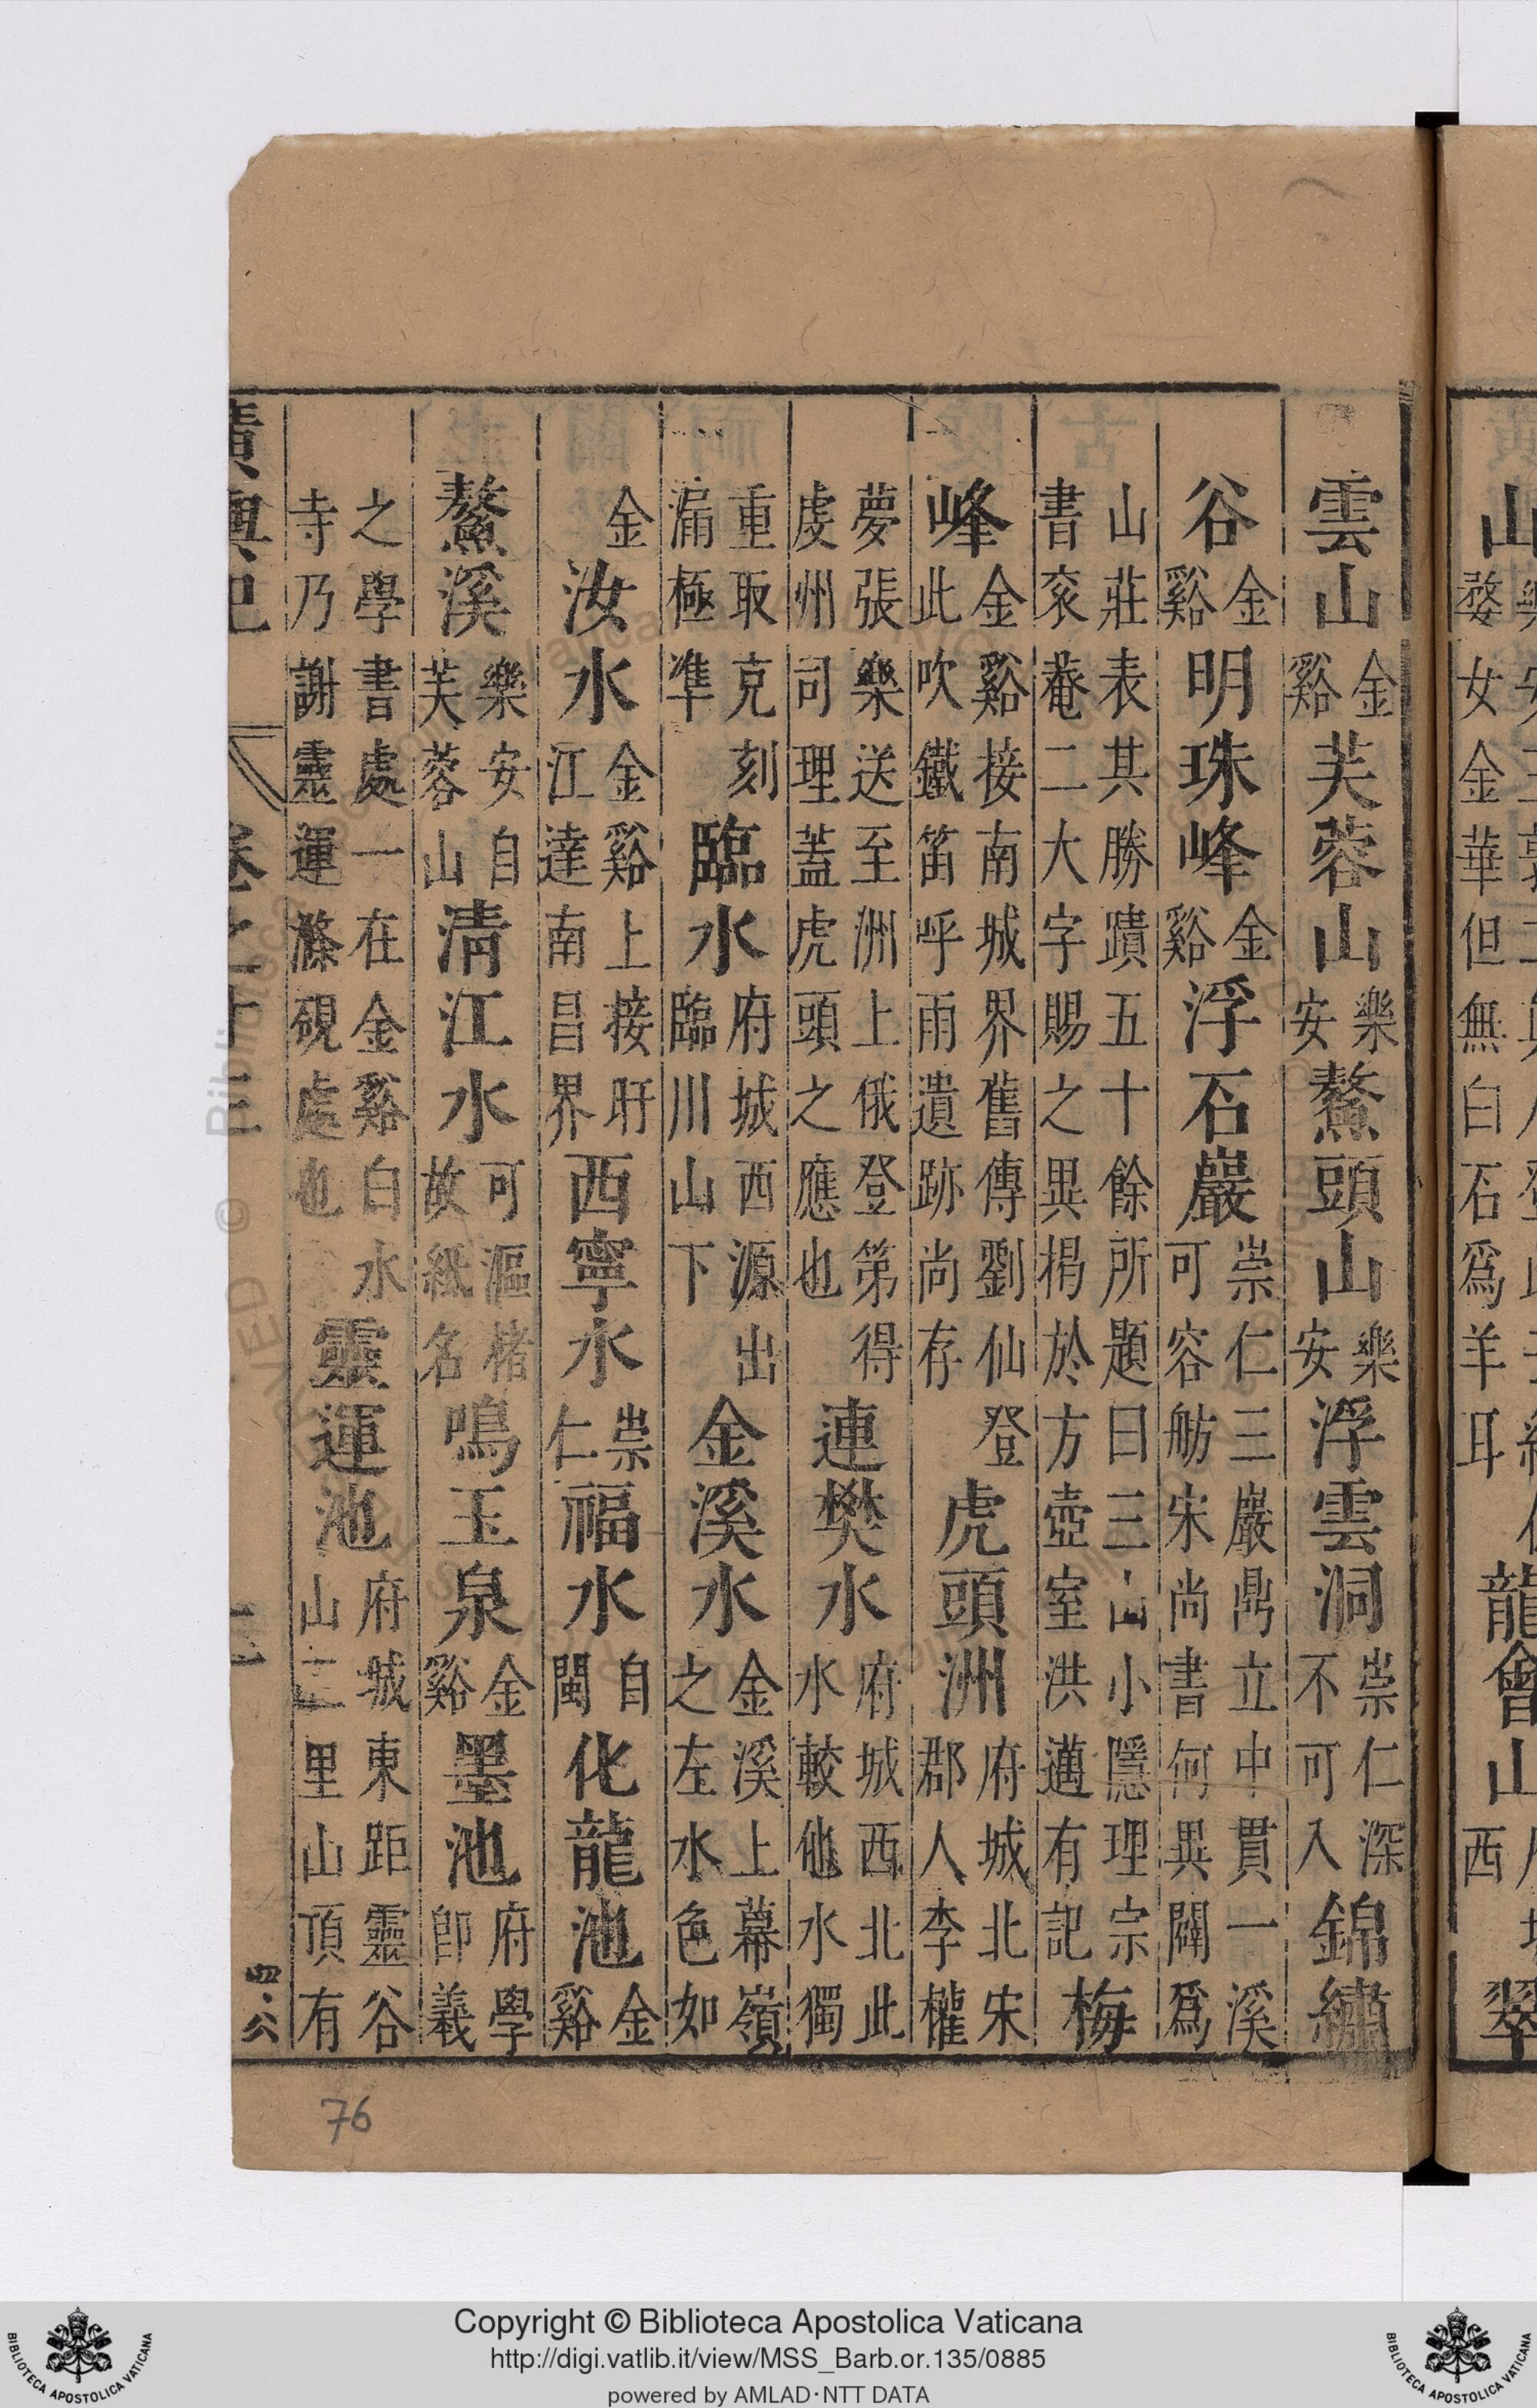 山婺女金華但無白石爲羊耳龍會山西翠
雲山金谿芙蓉山樂安鰲頭山樂安浮雲洞崇仁深不可入錦繡
谷金谿明珠峰金谿浮石巖崇仁三巖鼎立中貫一溪可容舫宋尚書何異闢爲
山莊表其勝蹟五十餘所題曰三山小隱理宗書衮菴二大字賜之異揭於方壺室洪邁有記梅
峰金谿接南城界舊傳劉仙登此吹鐵笛呼雨遺跡尚存虎頭洲府城北宋郡人李權
夢張樂送至洲上俄登第得虔州司理蓋虎頭之應也連樊水府城西北此水較他水獨
重取克刻漏極準臨水府城西源出臨川山下金溪水金溪上幕嶺之左水色如
金汝水金谿上接盱江達南昌界西寧水崇仁福水自閩化龍池金谿
鰲溪樂安自芙蓉山清江水可漚楮故紙名鳴玉泉金谿墨池府學卽羲
之學書處一在金谿白水寺乃謝靈運滌硯處也靈運池府城東距靈谷山三里山頂有
廣輿記卷之十三
76
Copyright © Biblioteca Apostolica Vaticana
http://digi.vatlib.it/view/MSS_Barb.or.135/0885
powered by AMLAD·NTT DATA
BIBLIOTECA APOSTOLICA VATICANA
BIBLIOTECA APOSTOLICA VATICANA